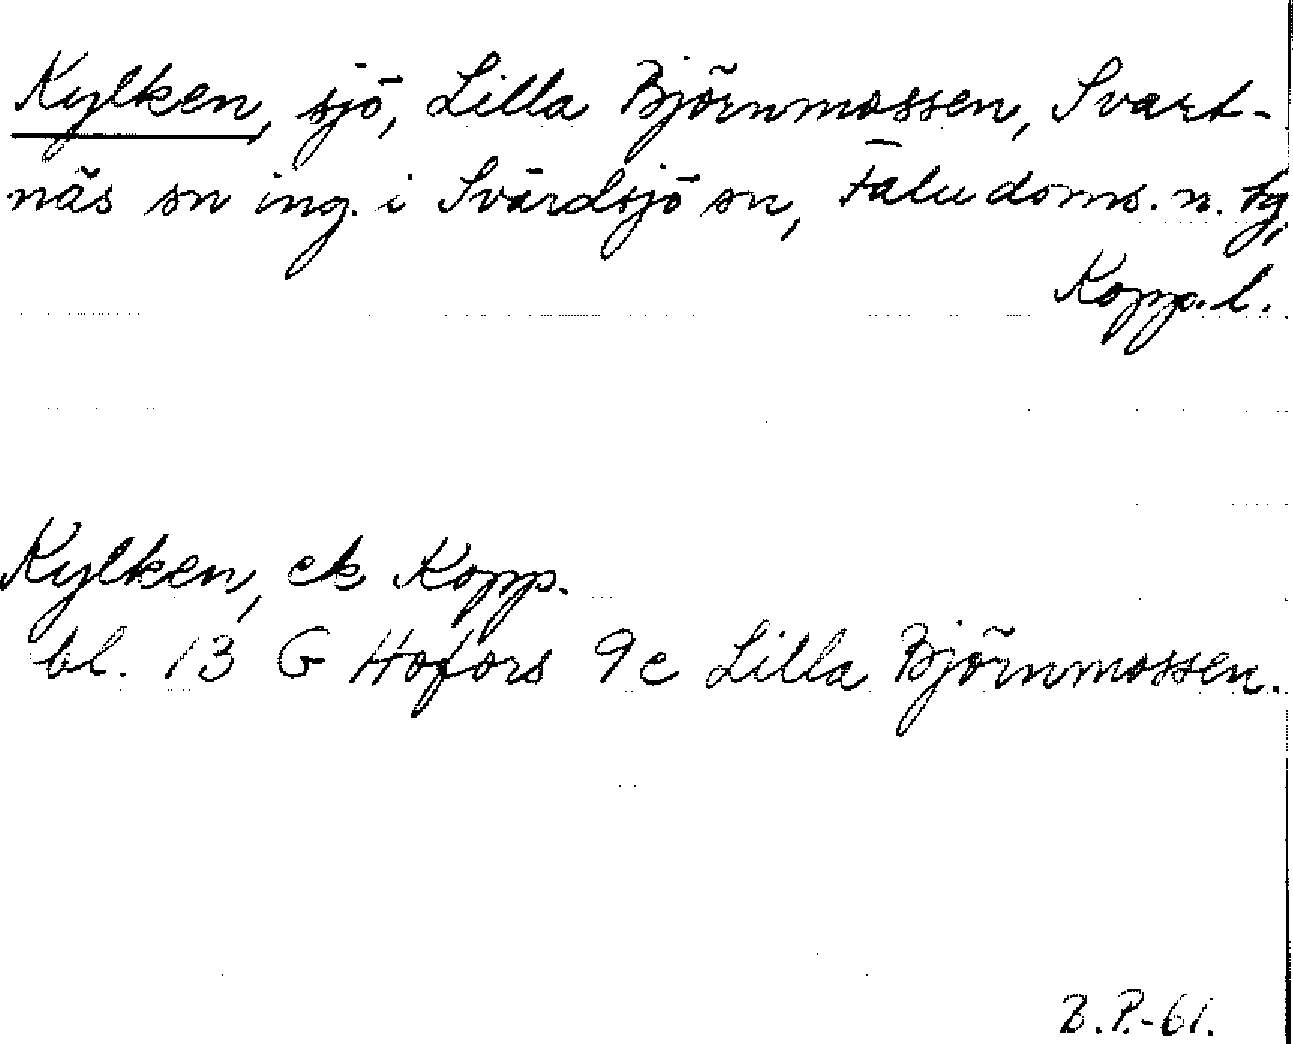 Kylken, sjö, Lilla Björnmossen, Svart-
näs sn ing. i Svärdsjö sn, Falu doms. n. tg,
Kopp. l.
Kylken, ek Kopp.
bl. 13 G Hofors 9c Lilla Björnmossen.
B.P.-61.